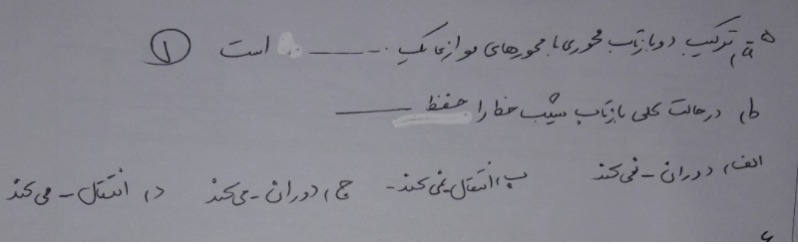 ۵ a) ترکیب دو بازتاب محوری با محورهای موازی یک ............ است ①
b) در حالت کلی بازتاب شیب خط را حفظ ــــــ
الف) دوران - نمی کند ب) انتقال - نمی کند - ج) دوران - می کند د) انتقال - می کند
۶